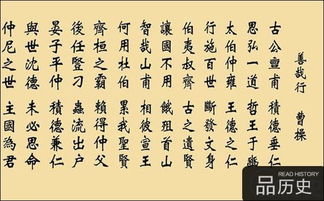 善哉行 曹操
古公亶甫 積德垂仁
思弘一道 哲王于豳
太伯仲雍 王德之仁
行施百世 斷發文身
伯夷叔齊 古之遺賢
讓國不用 餓殂首山
智哉山甫 相彼宣王
何用杜伯 累我聖賢
齊桓之霸 賴得仲父
後任豎刁 蟲流出戶
晏子平仲 積德兼仁
與世沈德 未必思命
仲尼之世 主國為君
READ HISTORY
品历史